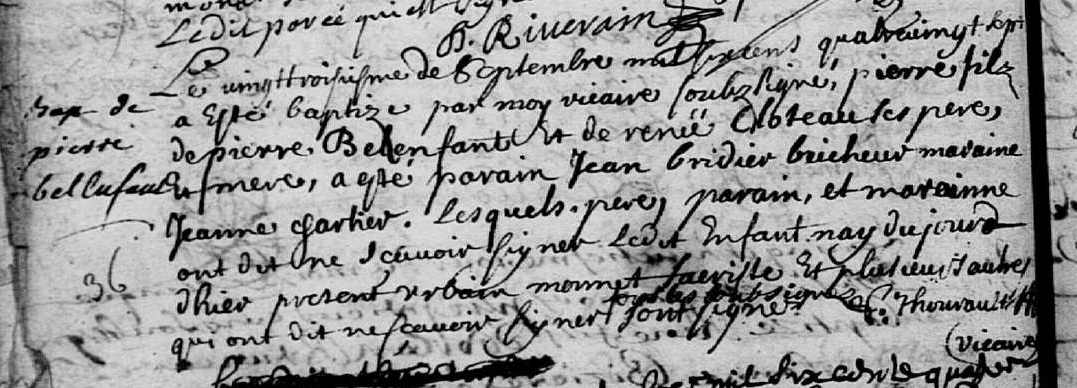 Ledit porcé qui est
P. Riverain
Le vingttroisisme de Septembre mil six cens quatrevingt sept
Bap de
a esté baptize par moy vicaire soubz signé, pierre filz
pierre
de pierre Belenfant Et de renée Aboteau ses pere,
bellenfant
Et mere, a esté parain Jean bridier bricheur maraine
Jeanne chartier. Lesquels. pere, parain, et marainne
ont dit ne scavoir signer Ledit Enfant nay du jourd
36
dhier present urbain monnet sacriste Et plusieurs autres
qui ont dit ne scavoir signer
soubsignez
sont signez
Thourault
vicaire
mil six cens quatre